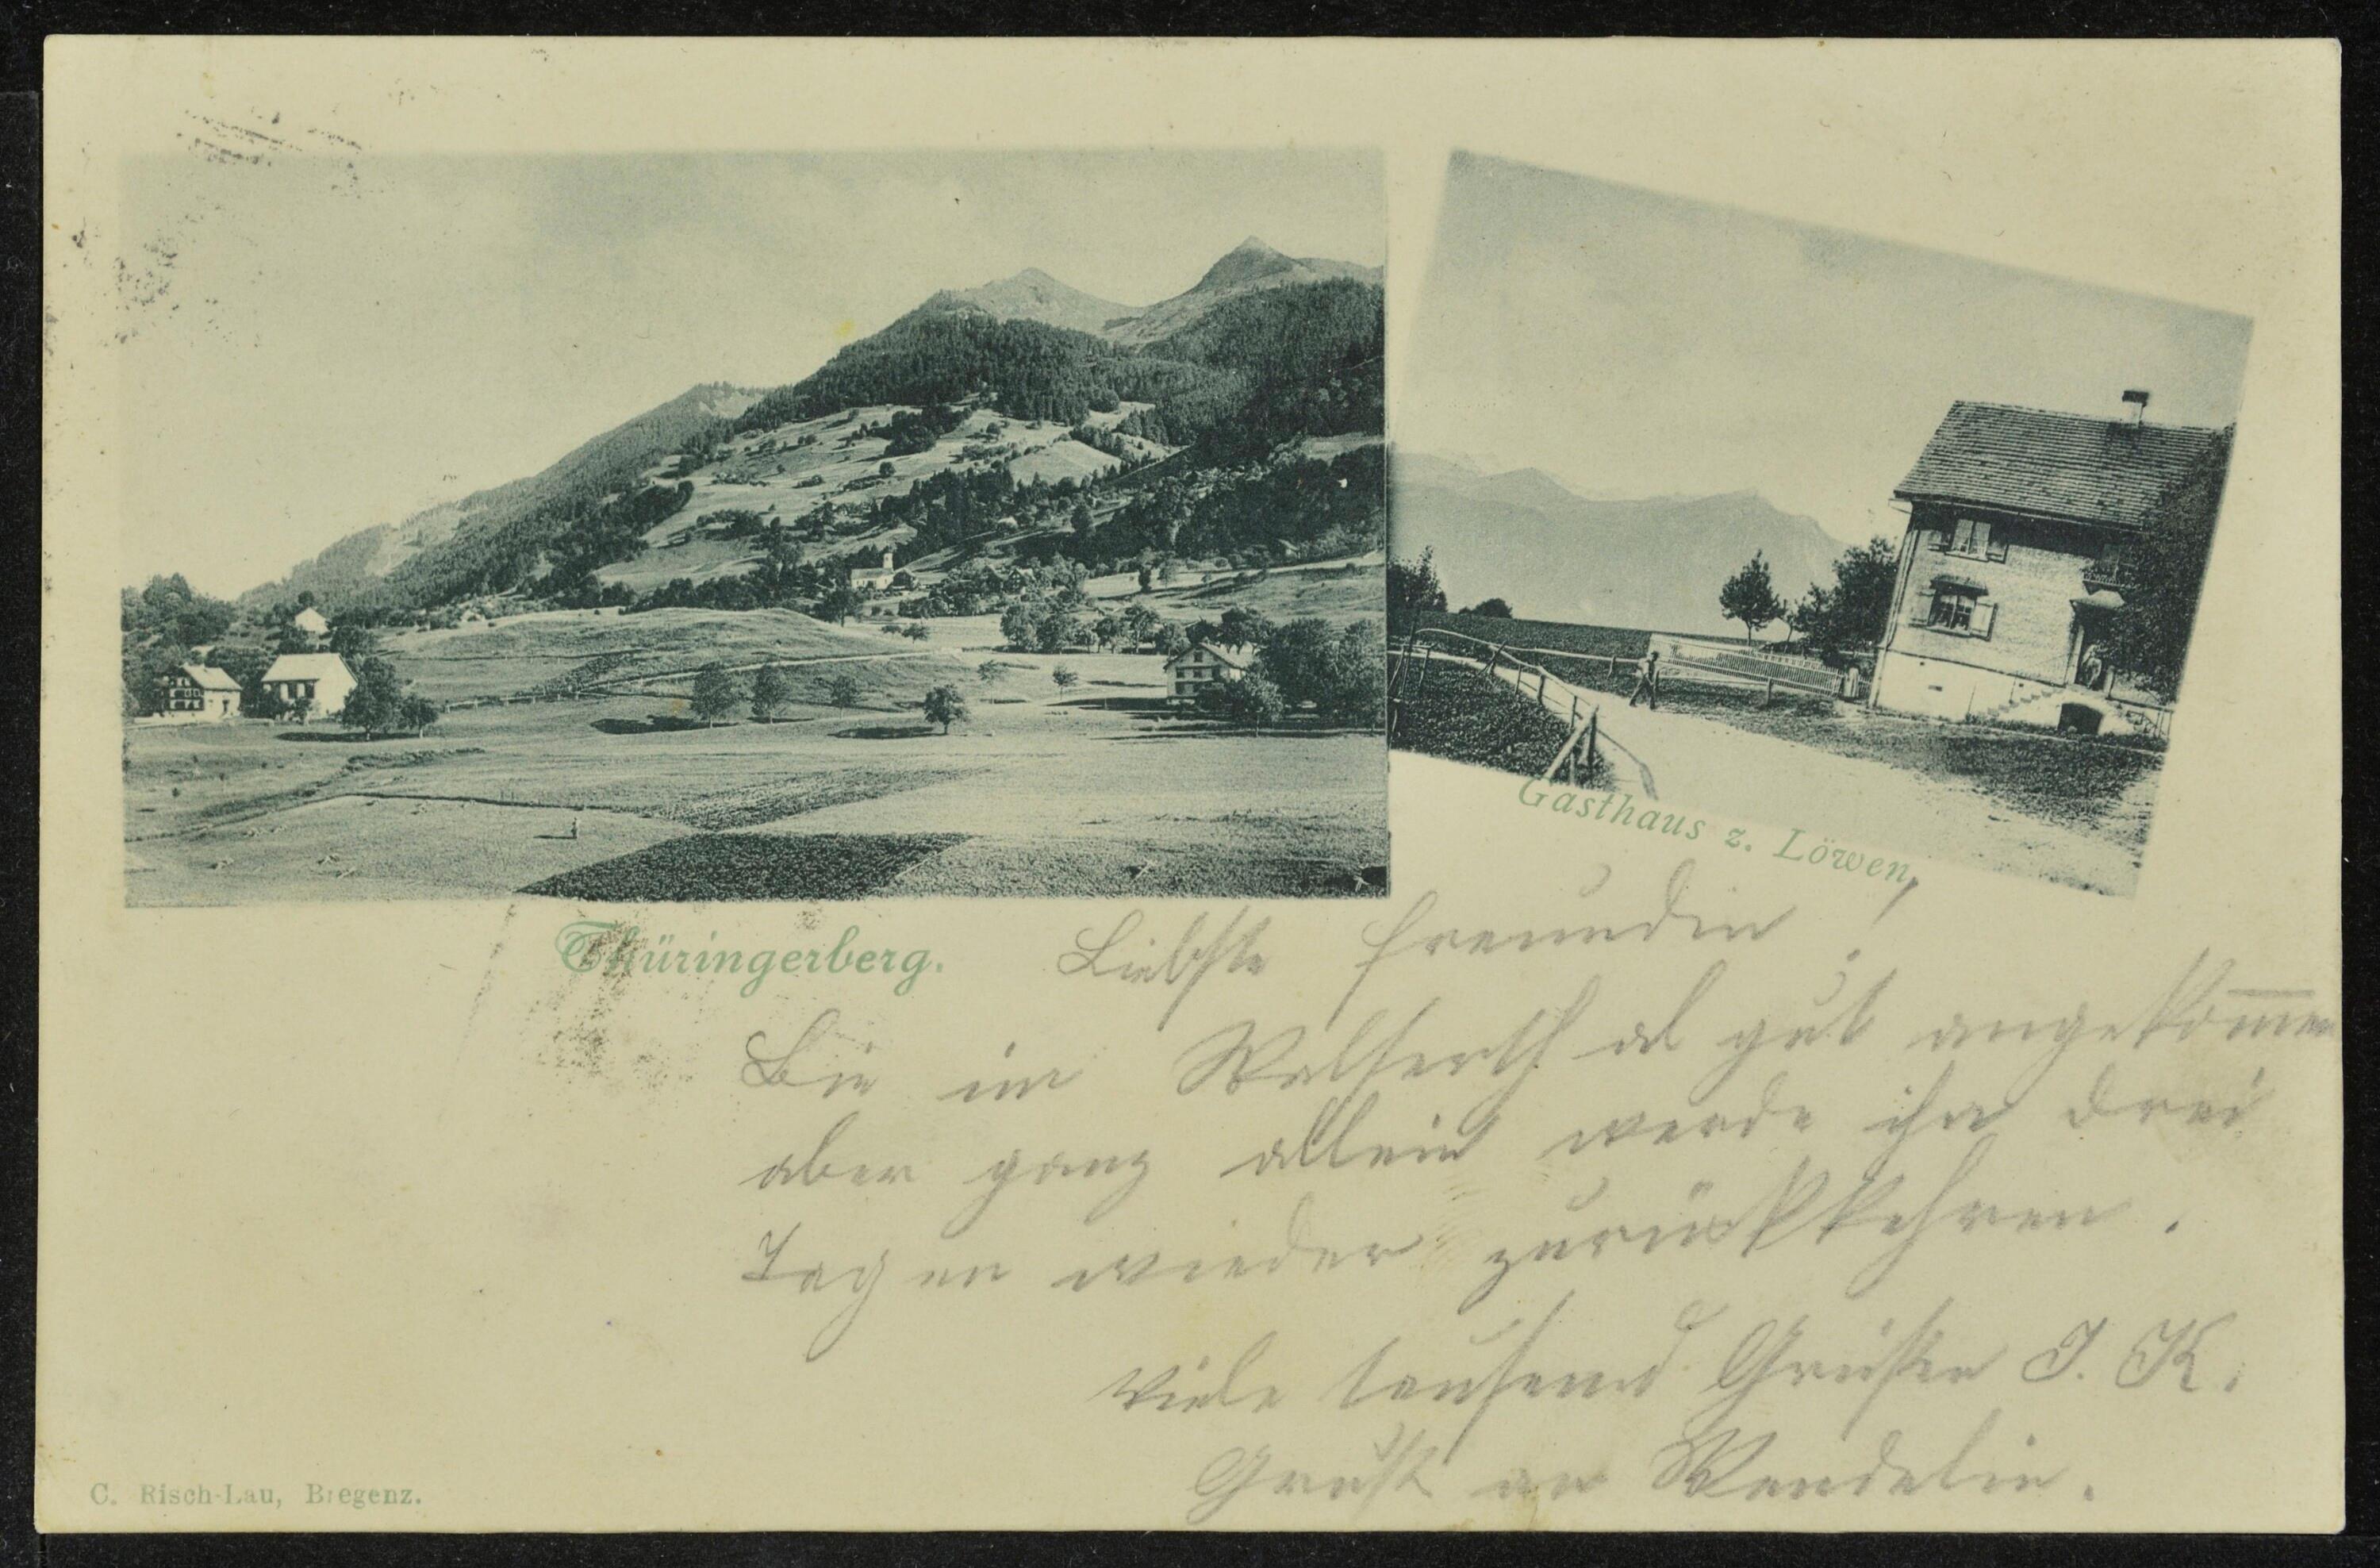 Gasthaus z. Löwen
Thüringerberg.
Liebste Freundin!
Bin im Walserthal gut angekommen
aber ganz allein werde in drei
Tagen wieder zurückkehren.
Viele tausend Grüße J. K.
Gruß an Wendelin.
C. Risch-Lau, Bregenz.